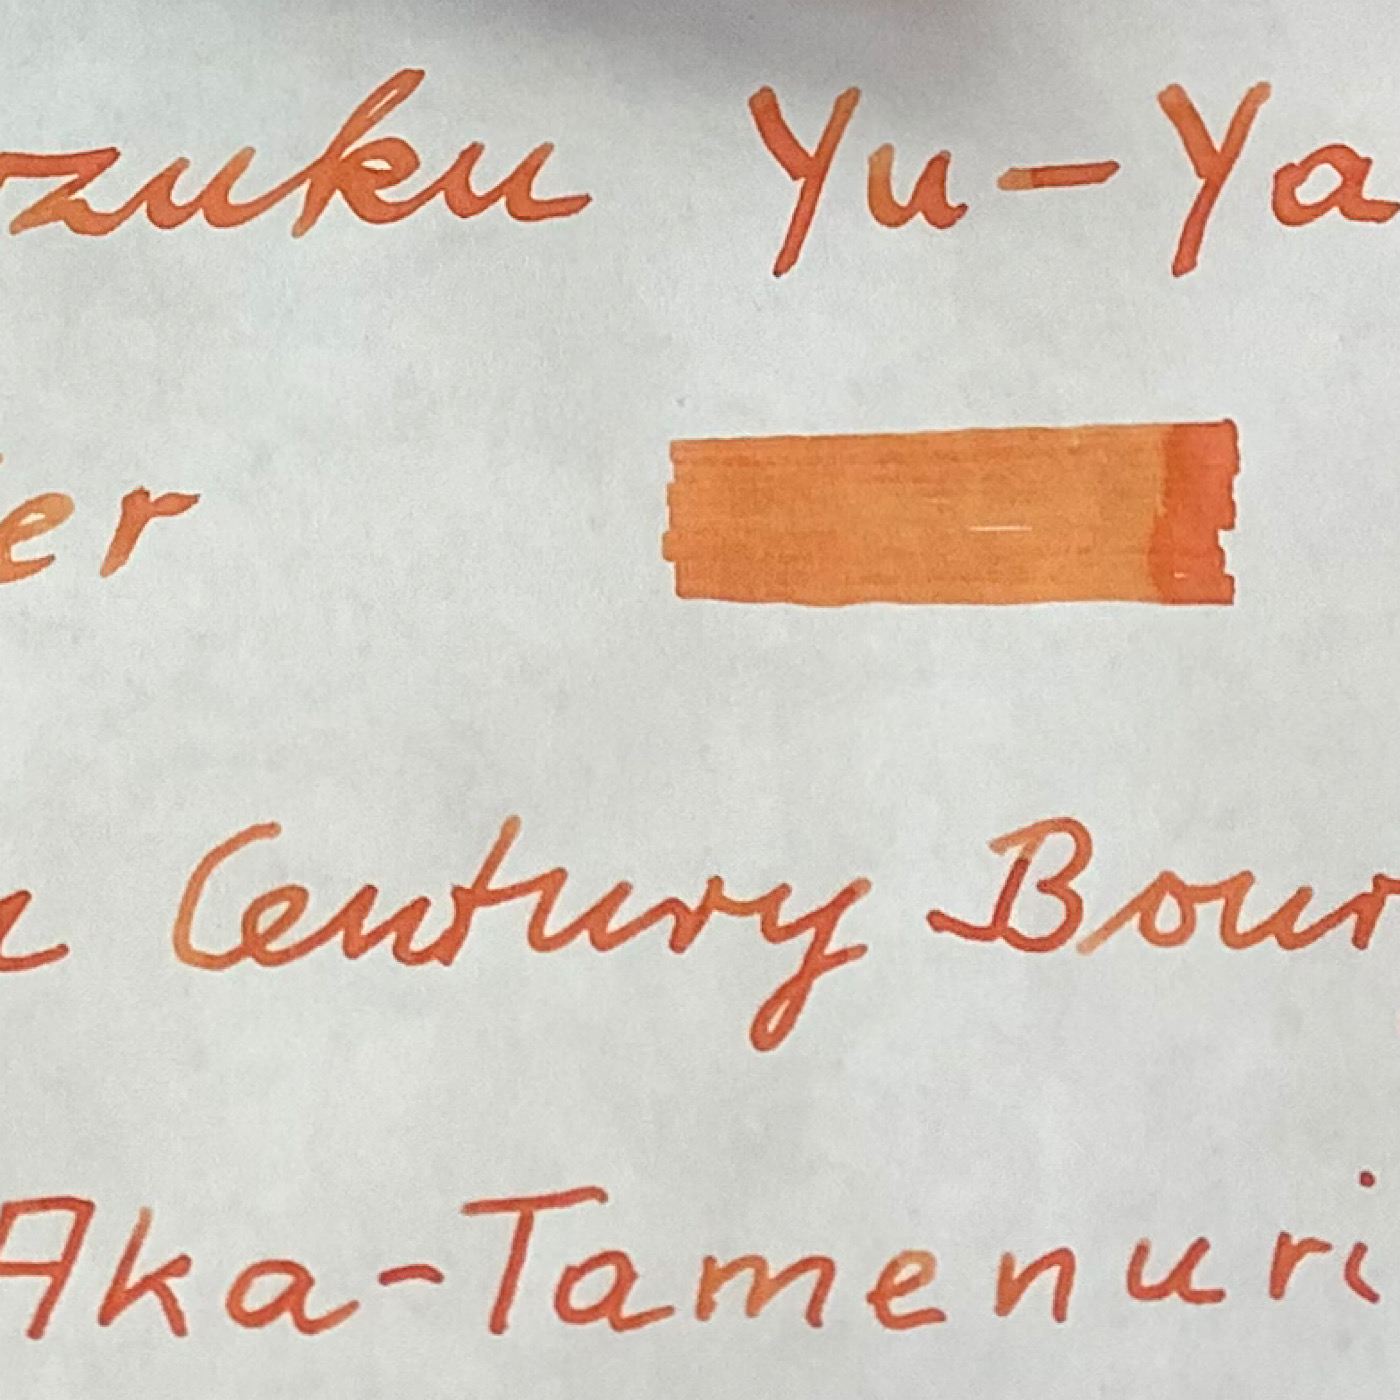 ozuku Yu-Ya
er
Century Bour
Aka-Tamenuri